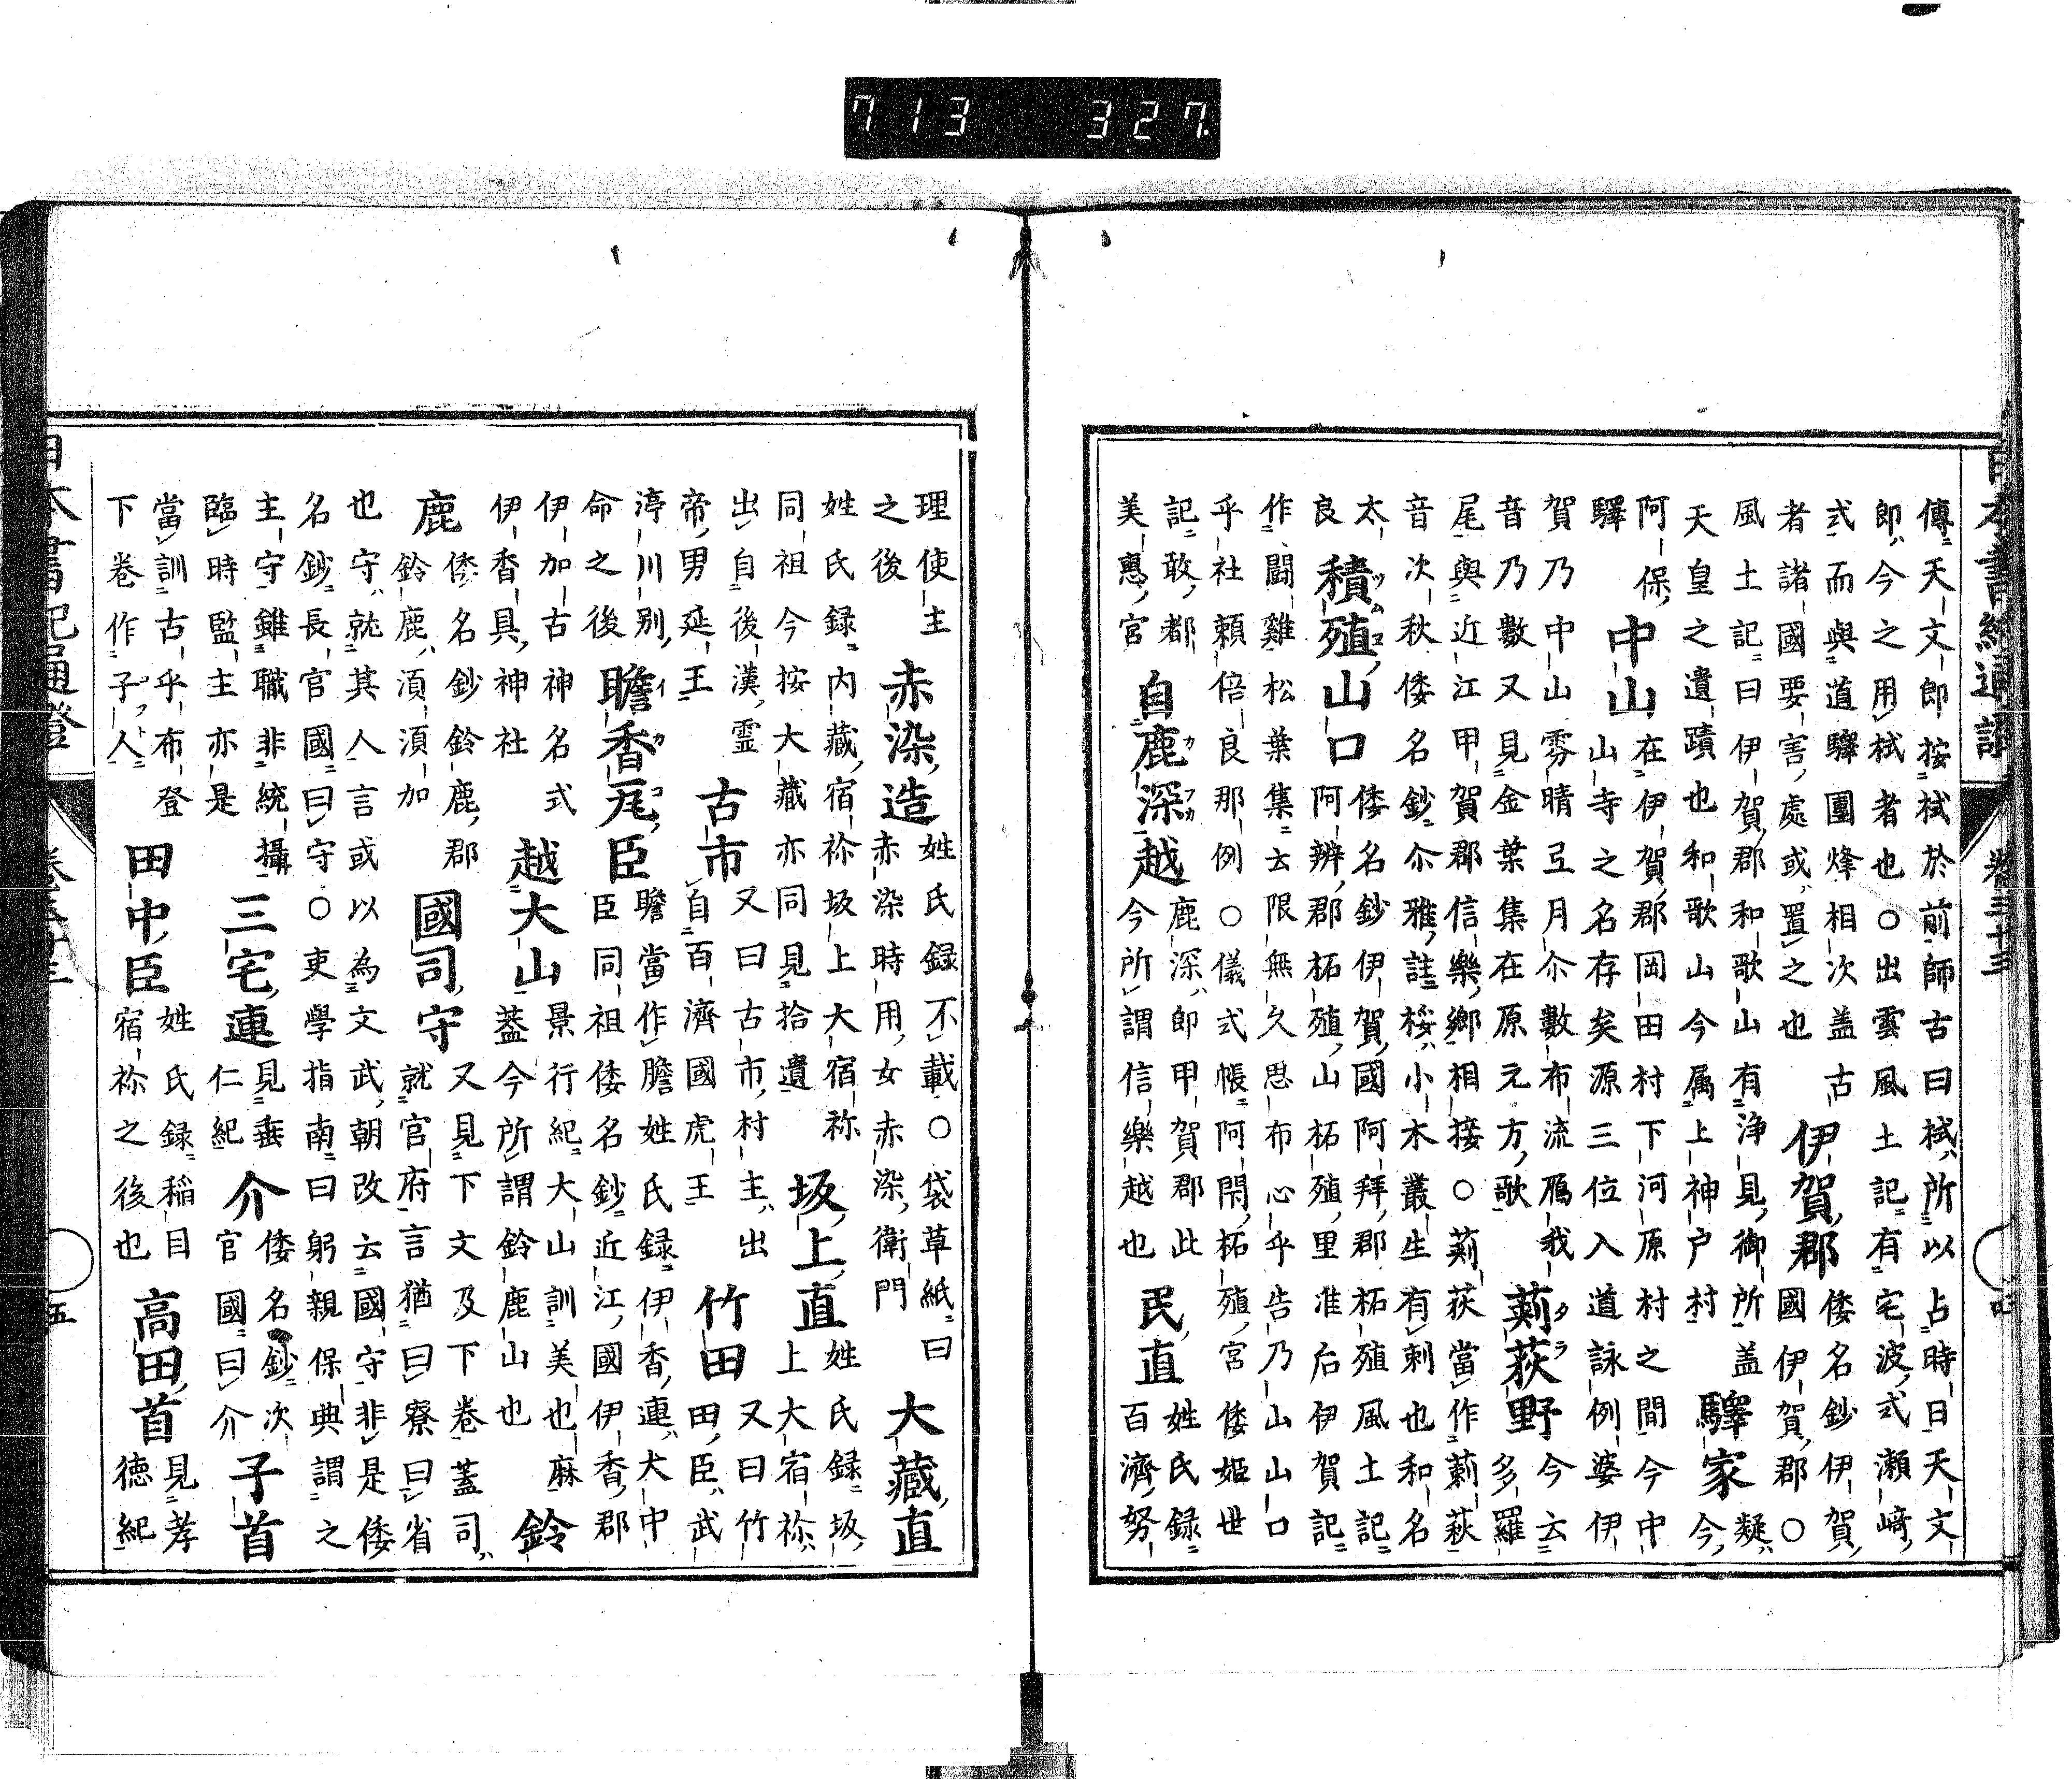 日本書紀通證 卷三十三 四
傳天文郎按栻於前師古曰栻所以占時日天文
即今之用栻者也○出雲風土記有宅波式瀬﨑
式而與道驛團烽相次盖古
者諸國要害處或置之也
伊賀郡
倭名鈔伊賀
國伊賀郡○
風土記曰伊賀郡和歌山有浄見御所盖
天皇之遺蹟也和歌山今属上神戸村
驛家
疑
今
阿保
驛
中山
在伊賀郡岡田村下河原村之間今中
山寺之名存矣源三位入道詠例婆伊
賀乃中山雰晴弖月尒數布流鴈我
音乃數又見金葉集在原元方歌
莿萩野
今云
多羅
尾與近江甲賀郡信樂鄉相接○莿萩當作莿萩
音次秋倭名鈔尒雅註桵小木叢生有刺也和名
太
良
積殖山口
倭名鈔伊賀國阿拜郡柘殖風土記
阿辨郡柘殖山柘殖里准后伊賀記
作闘雞松葉集云限無久思布心乎告乃山山口
乎社頼倍良那例○儀式帳阿閇柘殖宮倭姫世
記敢都
美惠官
自鹿深越
鹿深即甲賀郡此
今所謂信樂越也
民直
姓氏録
百濟努
理使主
之後
赤染造
姓氏録不載○袋草紙曰
赤染時用女赤染衛門
大藏直
姓氏録内藏宿祢坂上大宿祢
同祖今按大藏亦同見拾遺
坂上直
姓氏録坂
上大宿祢
出自後漢靈
帝男延王
古市
又曰古市村主出
自百濟國虎王
竹田
又曰竹
田臣武
渟川別
命之後
瞻香瓦臣
瞻當作膽姓氏録伊香連大中
臣同祖倭名鈔近江國伊香郡
伊加古神名式
伊香具神社
越大山
景行紀大山訓美也麻
蓋今所謂鈴鹿山也
鈴
鹿
倭名鈔鈴鹿郡
鈴鹿湏湏加
國司守
又見下文及下卷蓋司
就官府言猶曰寮曰省
也守就其人言或以為文武朝改云國守非是倭
名鈔長官國曰守○吏學指南曰躬親保典謂之
主守雖職非統攝
臨時監主亦是
三宅連
見垂
仁紀
介
倭名鈔次
官國曰介
子首
當訓古乎布登
下卷作子人
田中臣
姓氏録稲目
宿祢之後也
高田首
見孝
徳紀
日本書紀通證 卷三十三 五
713 327